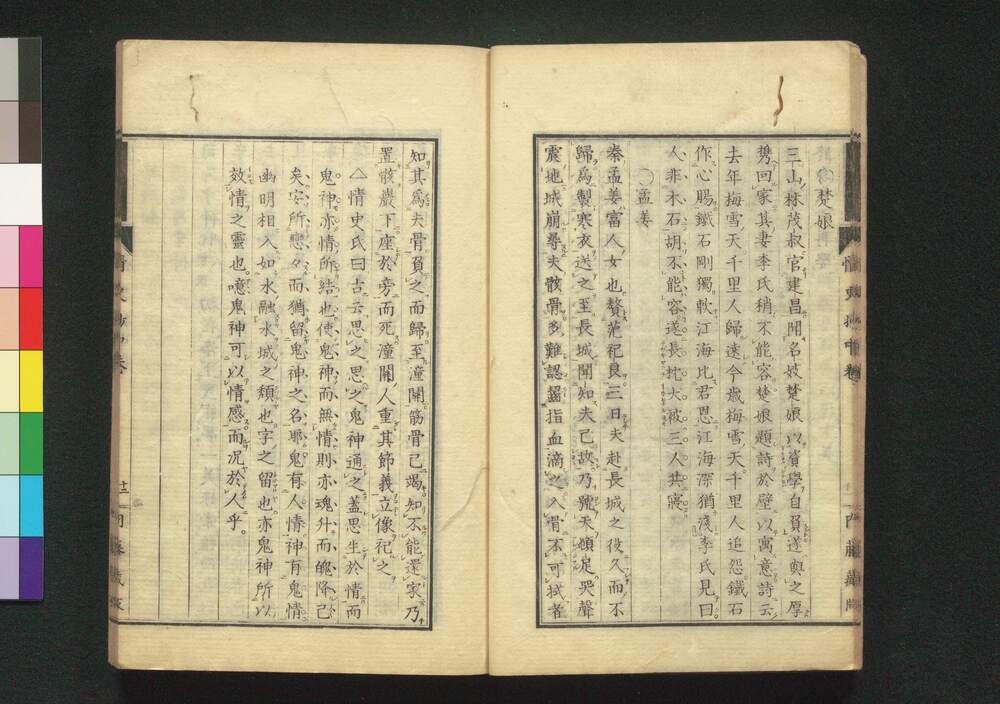 楚娘
三山林茂叔官建昌聞名妓楚娘以賓學自負遂與之厚
携回家其妻李氏稍不能容楚娘題詩於壁以寓意詩云
去年梅雪天千里人歸遠今歲梅雪天千里人追怨鐵石
作心腸鐵石剛獨軟江海比君恩江海深猶淺李氏見曰
人非木石胡不能容遂長枕大被三人共寢
孟姜
秦孟姜富人女也贅范杞良三日夫赴長城之役久而不
歸爲製寒衣送之至長城聞知夫已故乃號天傾足哭聲
震地城崩尋夫骸骨多難認齧指血滴之入骨不可拭者
知其爲夫骨負之而歸至潼關筋骨已竭知不能還家乃
置骸巖下座於旁而死潼關人重其節義立像祀之
△情史氏曰古云思之思之鬼神通之蓋思生於情而
鬼神亦情所結也使鬼神而無情則亦魂升而魄降已
矣安所戀々而猶留鬼神之名耶鬼有人情神有鬼情
幽明相入如水融水城之頽也字之留也亦鬼神所以
效情之靈也噫鬼神可以情感而况於人乎。